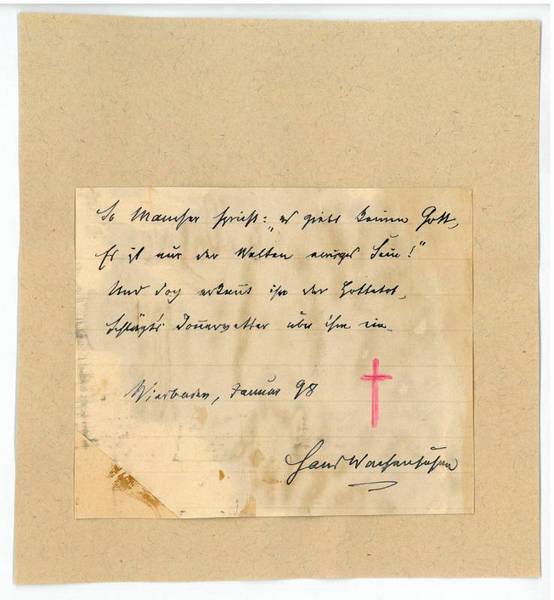 So Mancher spricht: „es giebt keinen Gott,
Es ist nur der Welten ewiges Sein!“
Und doch erkennt ihn der
Schlägt's Donnerwetter über ihm ein.
Wiesbaden, Januar 98
Hans Wachenhusen